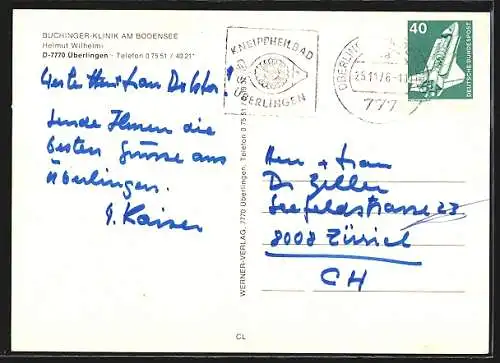 BUCHINGER-KLINIK AM BODENSEE
Helmut Wilhelmi
D-7770 Überlingen · Telefon 0 75 51 / 40 21*
Werter Herr + frau Doktor!
sende Ihnen die
besten Grüsse aus
Überlingen.
Kaiser
WERNER-VERLAG, 7770 Überlingen, Telefon 0 75 51
CL
KNEIPPHEILBAD
ÜBERLINGEN
ÜBERLINGEN
777
40
DEUTSCHE BUNDESPOST
Herr + frau
Dr Zeller
Seefeldstrasse 23
8008 Zürich
CH